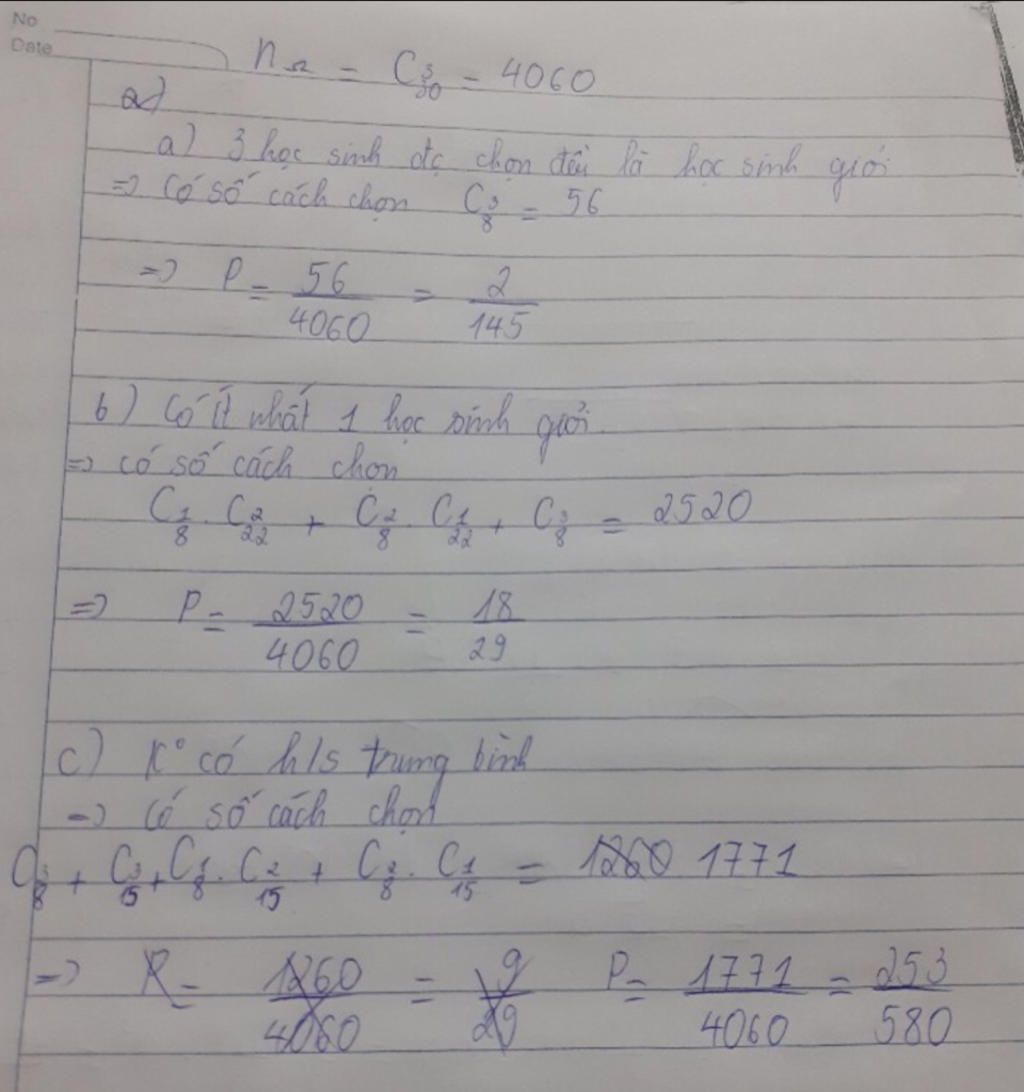 No
Date
n_Ω = C³₃₀ = 4060
a)
a) 3 học sinh đc chọn đều là học sinh giỏi
=> Có số cách chọn C³₈ = 56
=> P = 56/4060 = 2/145
b) Có ít nhất 1 học sinh giỏi.
=> có số cách chọn
C¹₈ . C²₂₂ + C²₈ . C¹₂₂ + C³₈ = 2520
=> P = 2520/4060 = 18/29
c) K° có h/s trung bình
=> Có số cách chọn
C³₈ + C³₁₅ + C¹₈ . C²₁₅ + C²₈ . C¹₁₅ = 1260 1771
=> P = 1260/4060 = 9/29 P = 1771/4060 = 253/580